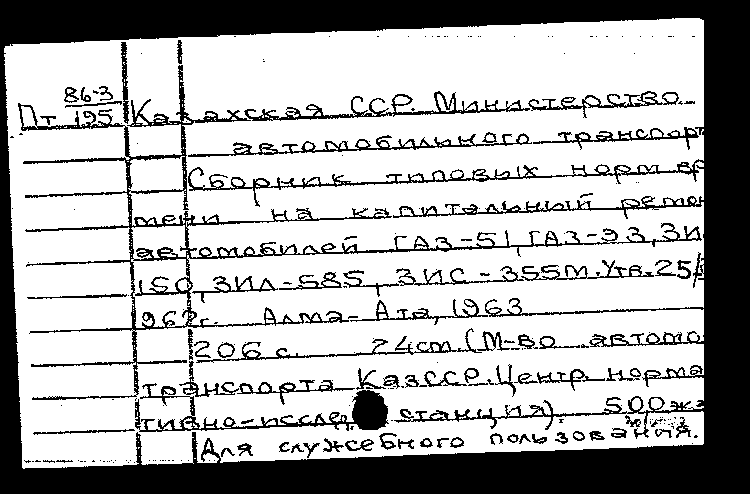 86-3
Пт 195 Казахская ССР. Министерство
автомобильного транспорт
Сборник типовых норм вре
мени на капитальный ремон
автомобилей ГАЗ-51, ГАЗ-93, ЗИ
150, ЗИЛ-585, ЗИС-355М. Утв. 25/
1962г. Алма-Ата, 1963
206 с. 24см. (М-во автомо
транспорта КазССР. Центр. норма
тивно-исслед станция). 500 экз
Для служебного пользования.